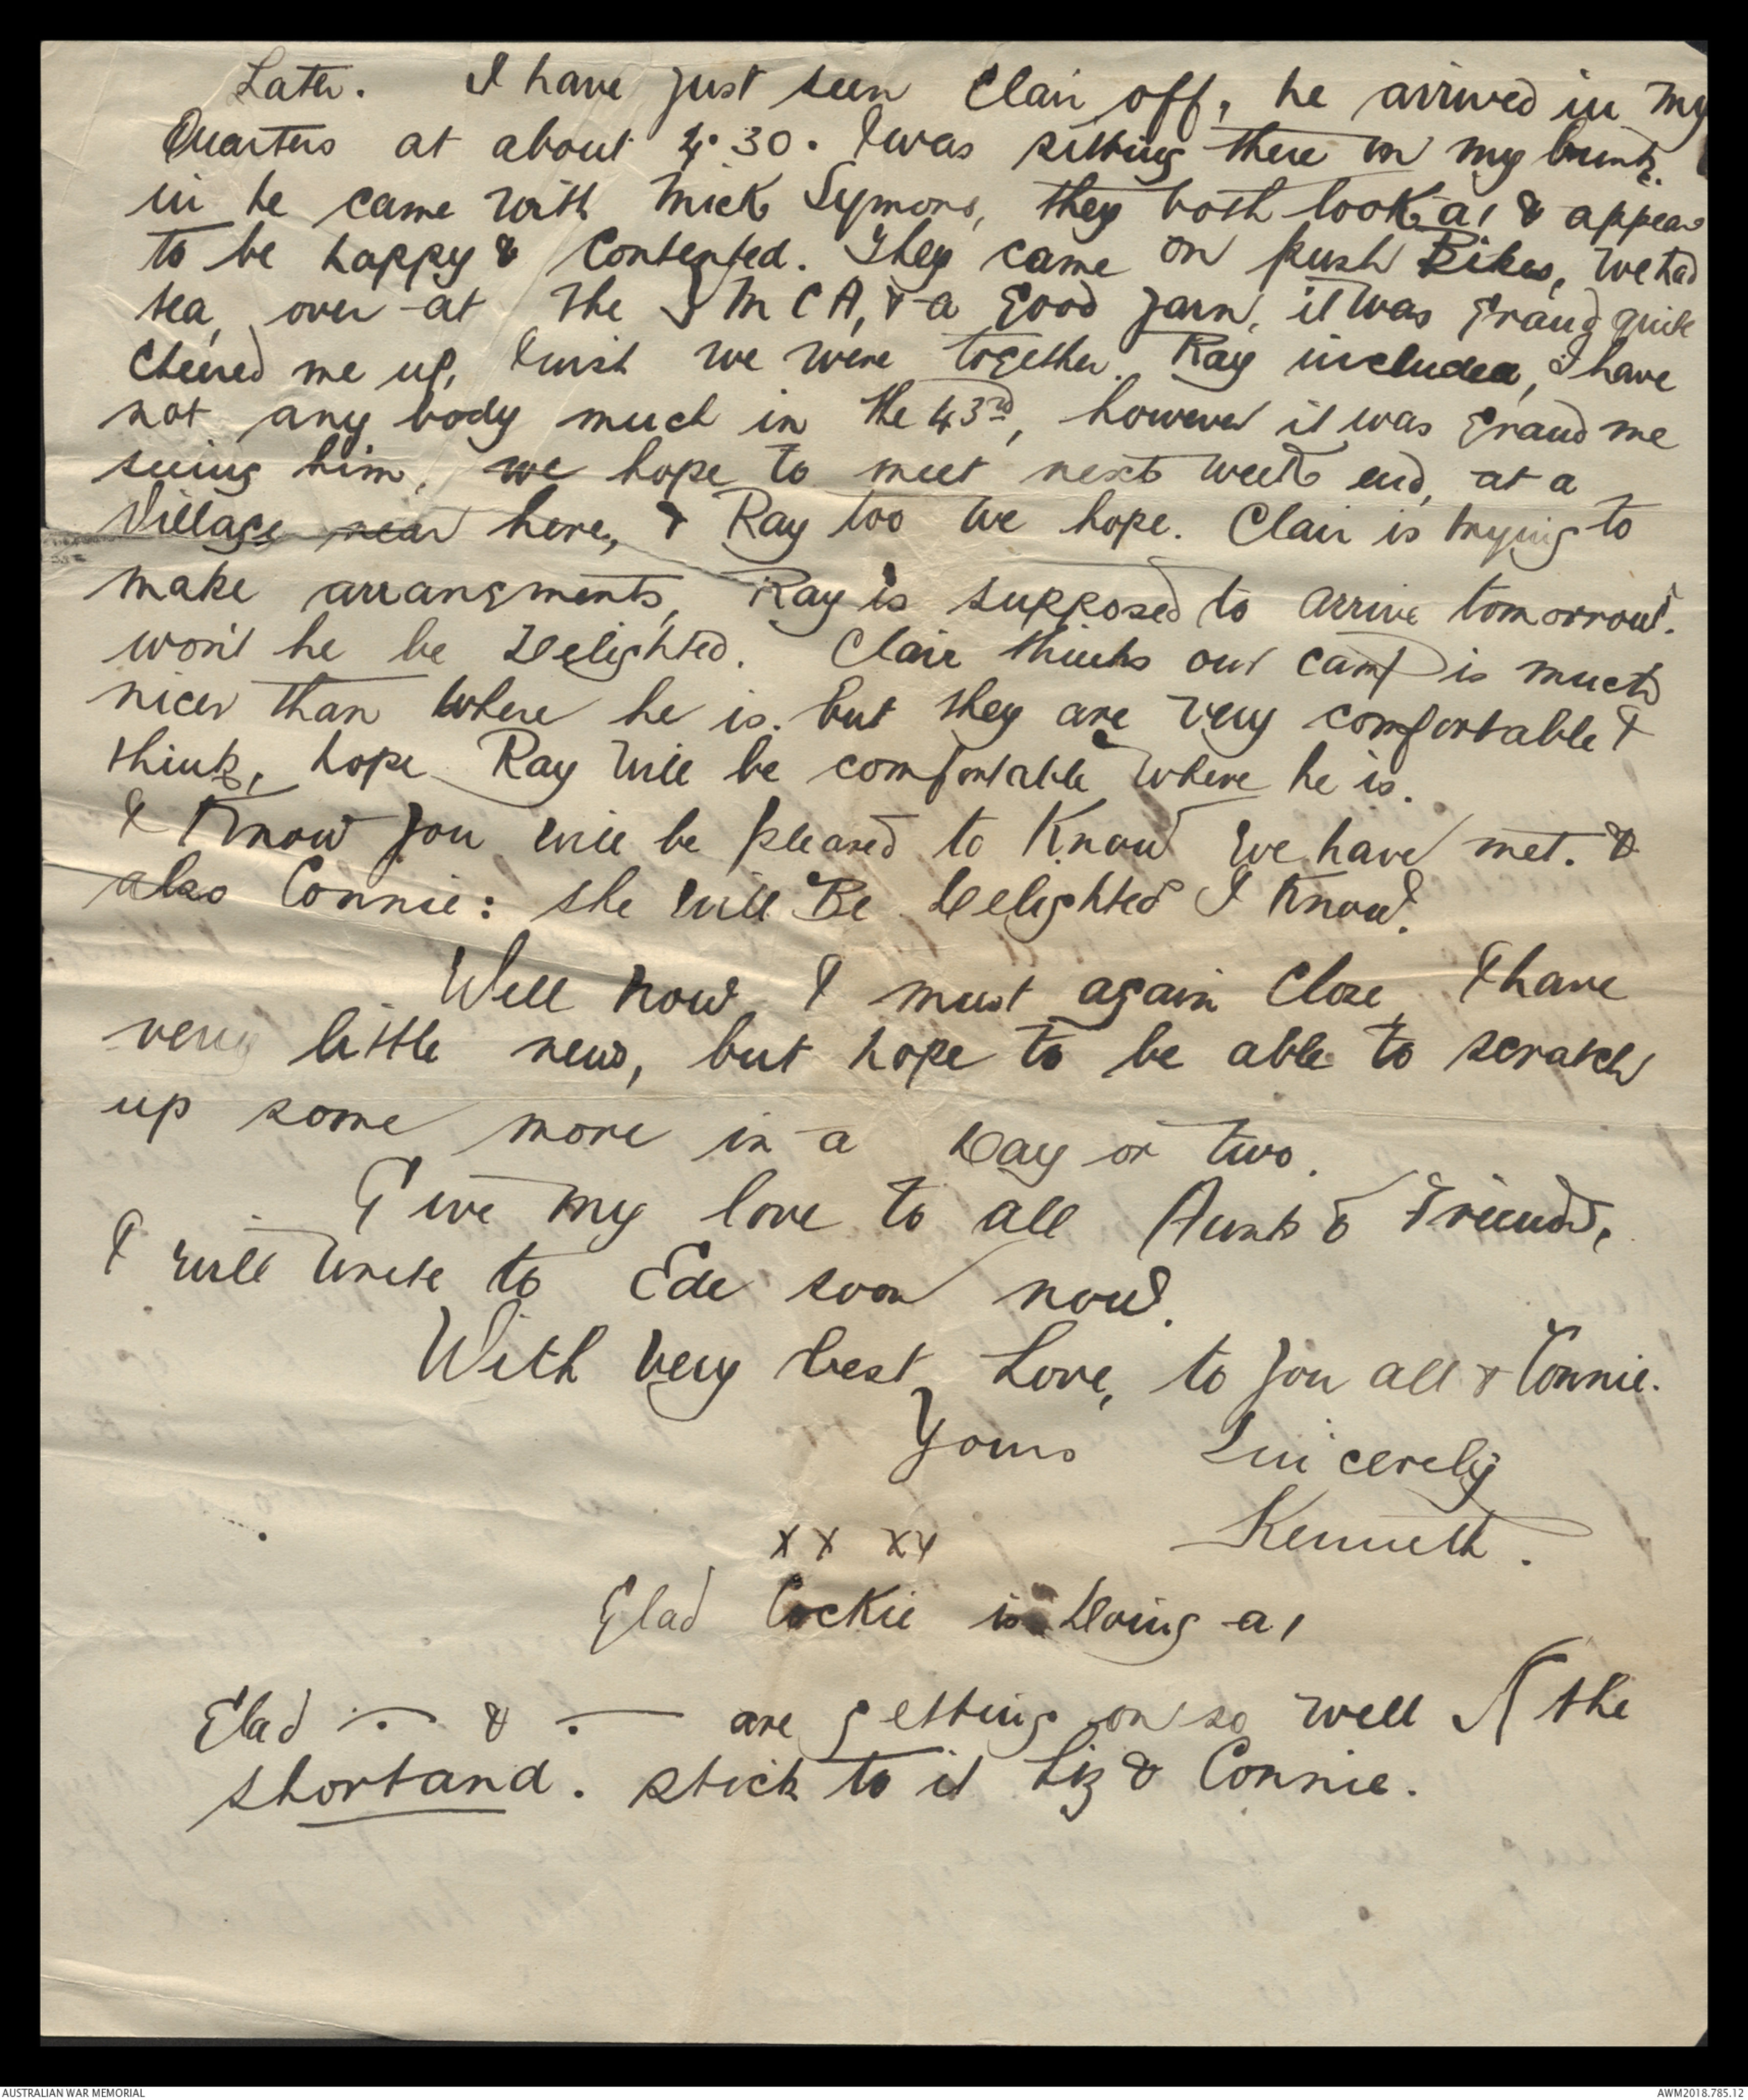 Later. I have just seen Clair off, he arrived in my
Quarters at about 4.30. I was sitting there on my bunk.
in he came with Mick Symons, they both look a1 & appear
to be happy & Contented. They came on push Bikes, we had
tea, over at the Y M C A, & a Good yarn, it was Grand quite
cheered me up, I wish we were together. Ray included, I have
not any body much in the 43rd, however it was Grand me
seeing him, we hope to meet next week end, at a
Village near here, & Ray too we hope. Clair is trying to
make arrangments, Ray is supposed to arrive tomorrow.
won't he be Delighted. Clair thinks our camp is much
nicer than where he is. but they are very comfortable I
think, hope Ray will be comfortable where he is.
I Know you will be pleased to Know we have met. &
also Connie: she will Be Delighted I Know.
Well now I must again Close, I have
very little news, but hope to be able to scratch
up some more in a Day or two.
Give my love to all Aunts & Friends,
I will write to Ede soon now.
With very best Love, to you all & Connie.
Yours Sincerely
Kenneth.
x x x x
Glad Cockie is Doing a1
Glad & are getting on so well the
shortand. stick to it Liz & Connie.
AUSTRALIAN WAR MEMORIAL AWM2018.785.12